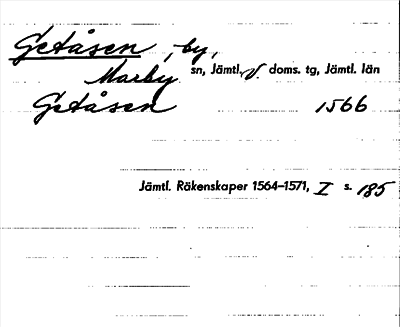 Getåsen, by,
Marby sn, Jämtl. v. doms. tg, Jämtl. län
Getåsen 1566
Jämtl. Räkenskaper 1564–1571, I s. 185